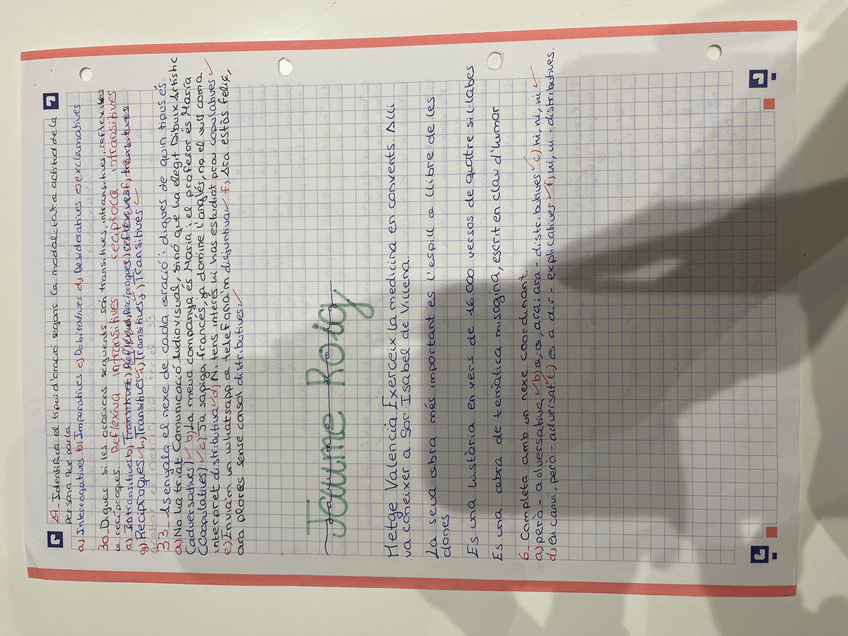 29_ Identifica el tipus d'oració segons la modalitat o actitud de la
persona que parla.
a) Interrogatives b) Imperatives c) Dubitatives d) Desideratives e) exclamatives
30_ Digues si les oracions següents són transitives, intransitives, reflexives
o recíproques. Reflexiva intransitives recíproca intransitives
a) Intransitives b) Transitives c) Reflexives d) Recíproques e) reflexives f) transitives
g) Recíproques h) Transitives i) Transitives j) Transitives
33_ Assenyala el nexe de cada oració i digues de quin tipus és.
a) No ha triat Comunicació Audiovisual, sinó que ha elegit Dibuix Artístic
(adversatives) b) La meua companya és Maria i el profesor és María
(Copulatives) c) Ja sapiga francés, ja domine l'anglés, no el vull coma
interpret distributiva d) Ni tens interés ni has estudiat prou copulatives
e) Envia'm un whatsapp o telefona'm disjuntiva f) Ara estàs feliç,
ara plores sense consol distributives
Jaume Roig
Metge Valencià Exerceix la medicina en convents. Allí
va conèixer a Sor Isabel de Villena.
La seua obra més important és l'espill o llibre de les
dones
Es una història en vers de 16.000 versos de quatre síl·labes
Es una obra de temàtica misogina, escrit en clau d'humor
6_ Completa amb un nexe coordinant.
a) però - adversativa b) o, o, ara i ara - distributives c) ni, ni, ni
d) en canvi, però - adversat e) és a dir - explicatives f) ni, ni - distributives.